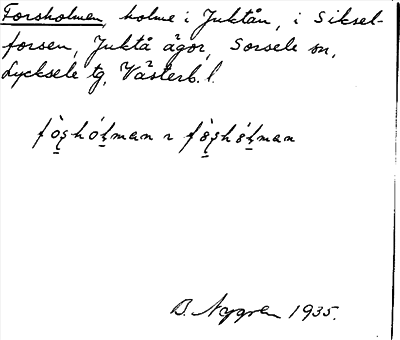 Forsholmen, holme i Juktån, i Siksel-
forsen, Juktå ägor, Sorsele sn,
Lycksele tg, Västerb. l.
B. Nygren 1935.